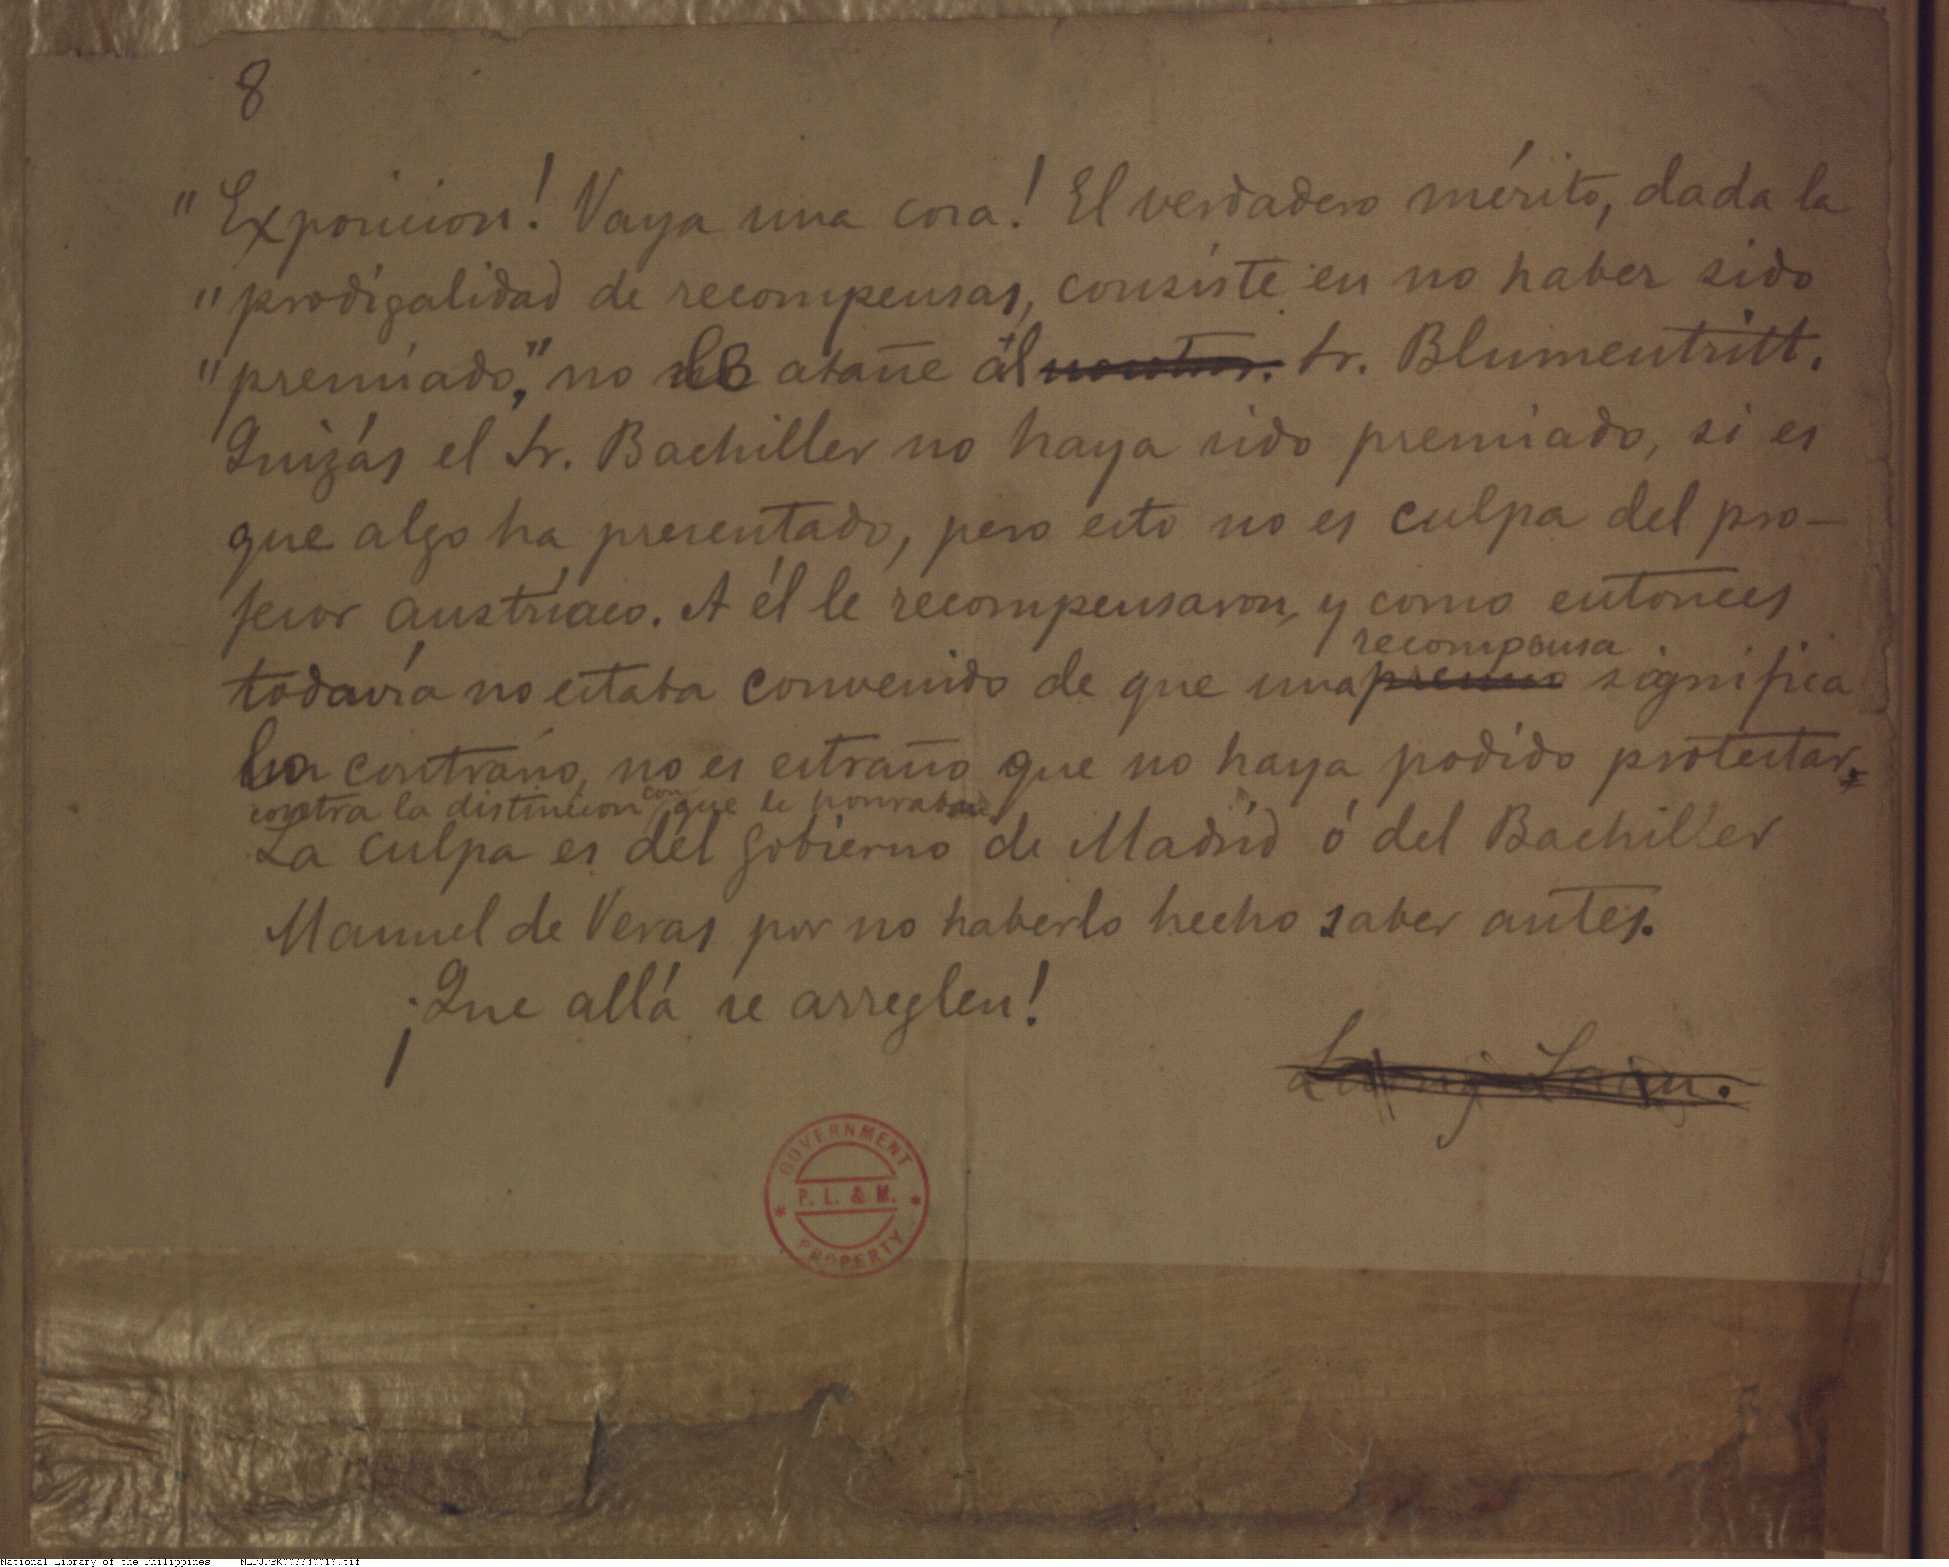 8
"Exposicion! Vaya una cosa! El verdadero mérito, dada la
"prodigalidad de recompensas, consiste en no haber sido
"premiado," no le atañe ál Sr. Blumentritt.
Quizás el Sr. Bachiller no haya sido premiado, si es
que algo ha presentado, pero esto no es culpa del pro-
fesor austríaco. A él le recompensaron, y como entonces
recompensa
todavía no estaba convenido de que una premio significa
lo contrario, no es estraño que no haya podido protestar
contra la distincion con que le honraban
La culpa es del gobierno de Madrid ó del Bachiller
Manuel de Veras por no haberlo hecho saber antes.
¡Que allá se arreglen!
Laong Laan.
GOVERNMENT
P. L. & M.
PROPERTY
National Library of the Philippines